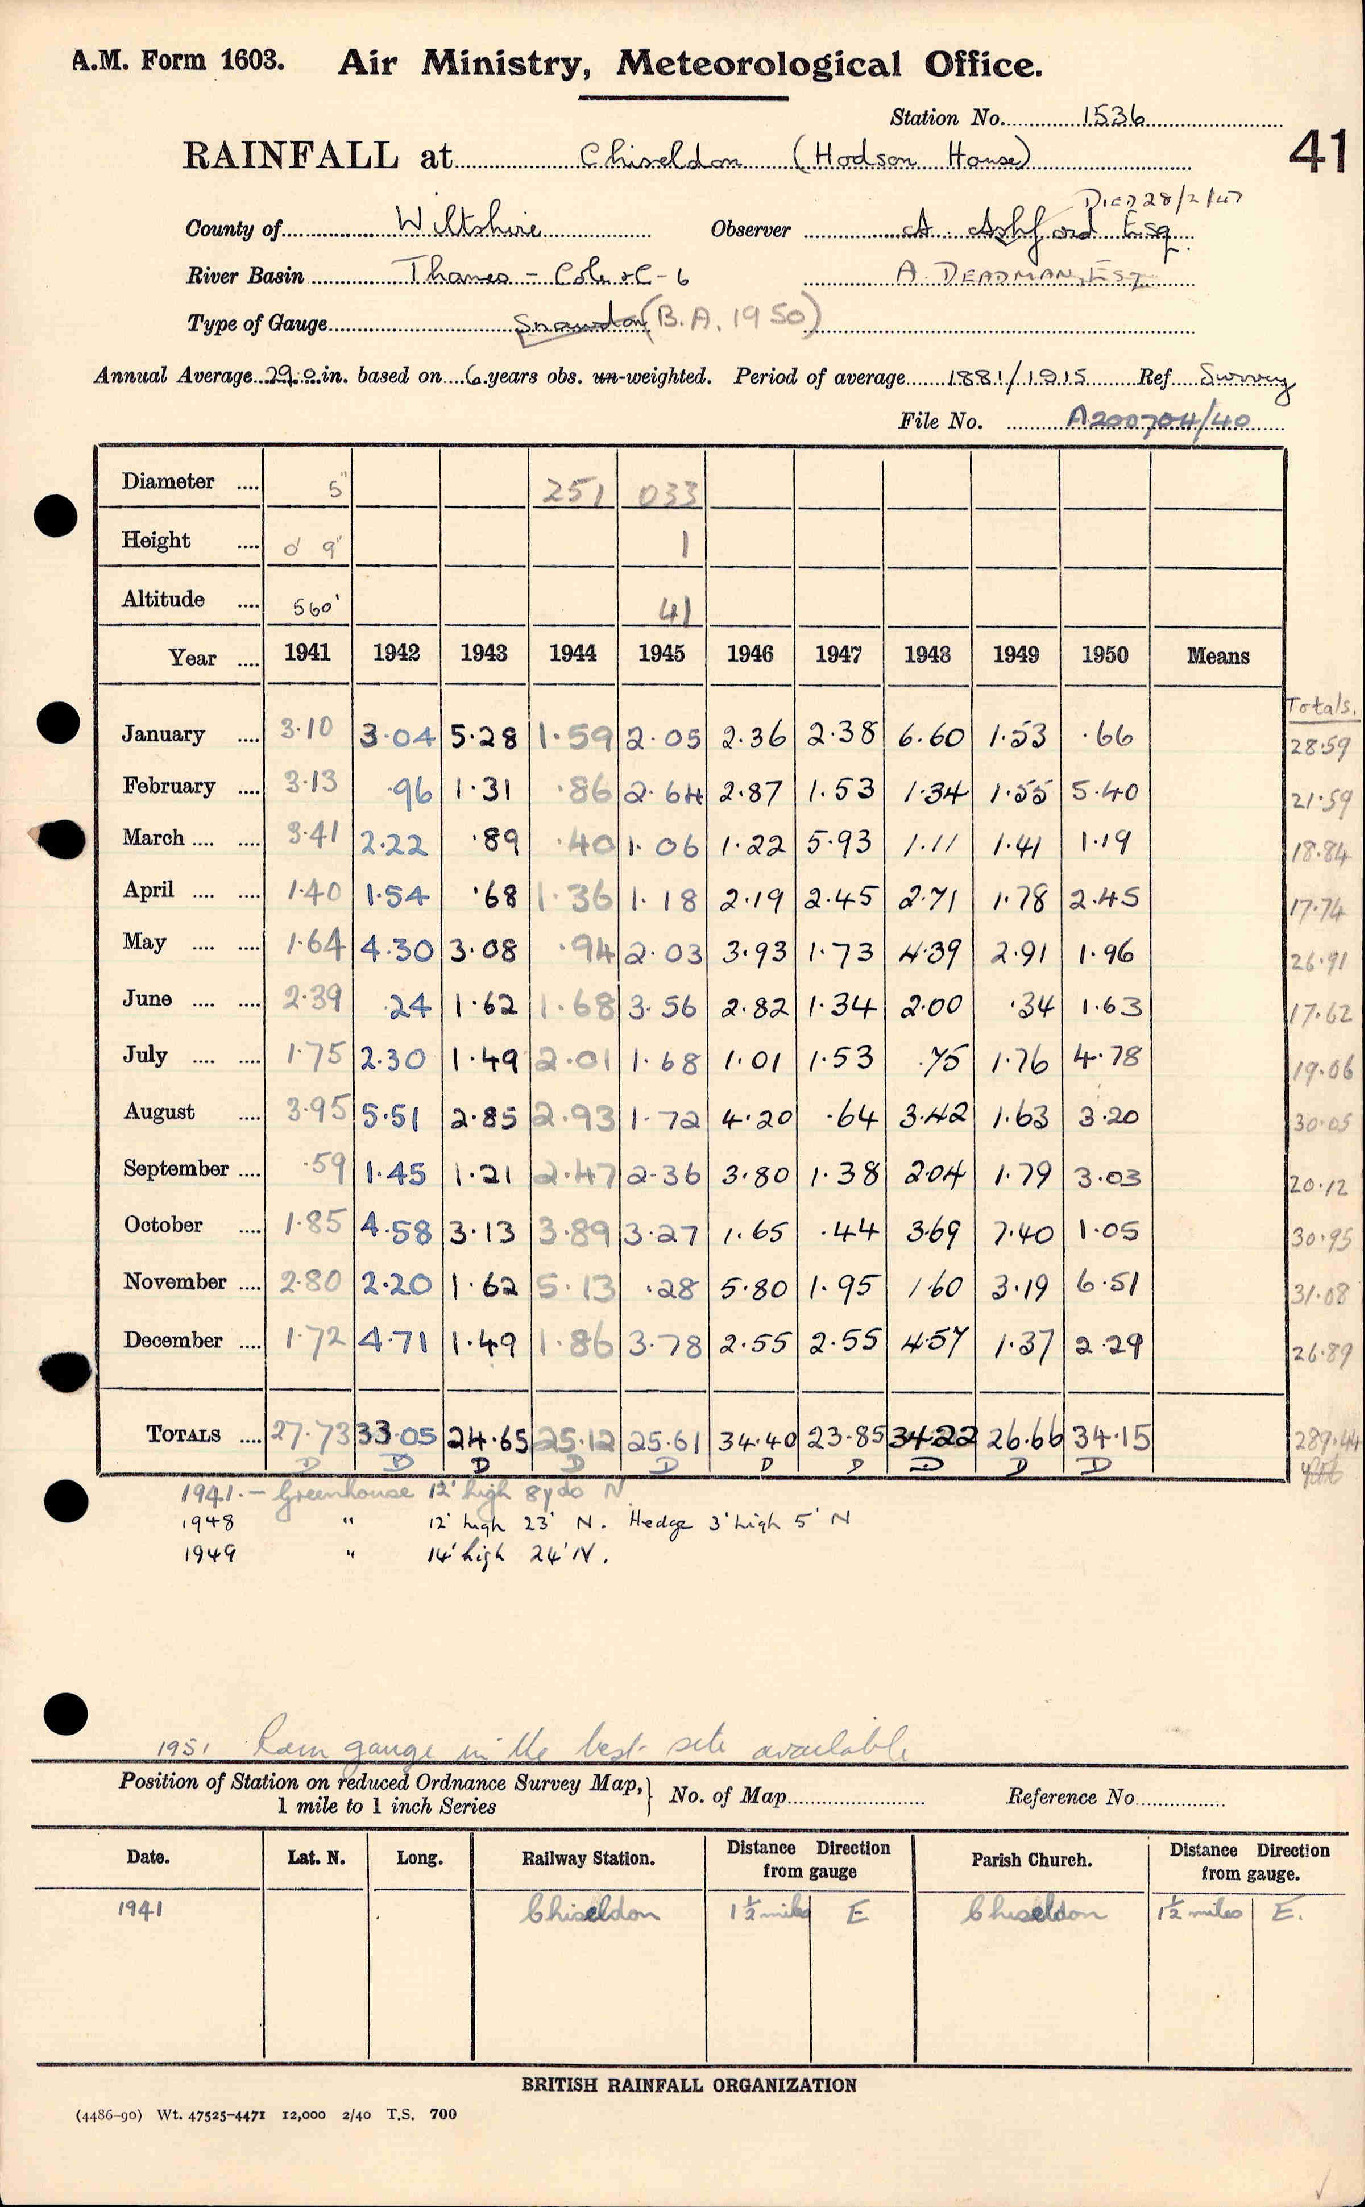 A.M. Form 1603. Air Ministry, Meteorological Office.
Station No. 1536
41
RAINFALL at Chiseldon (Hodson House)
DIED 28/2/47
County of Wiltshire Observer A. Ashford Esq.
River Basin Thames - Cole &C - 6 A. DEADMAN, ESQ
Type of Gauge Snowdon (B.A. 1950)
Annual Average 29.0 in. based on 6 years obs. un-weighted. Period of average 1881/1915 Ref. Survey
File No. A200704/40
Diameter .... 5" 251 033
Height .... 0' 9" 1
Altitude .... 560' 41
Year .... 1941 1942 1943 1944 1945 1946 1947 1948 1949 1950 Means
Totals.
January .... 3.10 3.04 5.28 1.59 2.05 2.36 2.38 6.60 1.53 .66 28.59
February .... 3.13 .96 1.31 .86 2.64 2.87 1.53 1.34 1.55 5.40 21.59
March .... .... 3.41 2.22 .89 .40 1.06 1.22 5.93 1.11 1.41 1.19 18.84
April .... .... 1.40 1.54 .68 1.36 1.18 2.19 2.45 2.71 1.78 2.45 17.74
May .... .... 1.64 4.30 3.08 .94 2.03 3.93 1.73 4.39 2.91 1.96 26.91
June .... .... 2.39 .24 1.62 1.68 3.56 2.82 1.34 2.00 .34 1.63 17.62
July .... .... 1.75 2.30 1.49 2.01 1.68 1.01 1.53 .75 1.76 4.78 19.06
August .... 3.95 5.51 2.85 2.93 1.72 4.20 .64 3.42 1.63 3.20 30.05
September .... .59 1.45 1.21 2.47 2.36 3.80 1.38 2.04 1.79 3.03 20.12
October .... 1.85 4.58 3.13 3.89 3.27 1.65 .44 3.69 7.40 1.05 30.95
November .... 2.80 2.20 1.62 5.13 .28 5.80 1.95 1.60 3.19 6.51 31.08
December .... 1.72 4.71 1.49 1.86 3.78 2.55 2.55 4.57 1.37 2.29 26.89
TOTALS .... 27.73 33.05 24.65 25.12 25.61 34.40 23.85 34.22 26.66 34.15 289.44
D D D D D D D D D D
1941. - Greenhouse 12' high 8 yds N
1948 " 12' high 23' N. Hedge 3' high 5' N
1949 " 14' high 24' N.
1951 Rain gauge in the best site available
Position of Station on reduced Ordnance Survey Map, 1 mile to 1 inch Series } No. of Map Reference No
Date. Lat. N. Long. Railway Station. Distance Direction from gauge Parish Church. Distance Direction from gauge.
1941 Chiseldon 1½ miles E Chiseldon 1½ miles E.
BRITISH RAINFALL ORGANIZATION
(4486-90) Wt. 47525-4471 12,000 2/40 T.S. 700